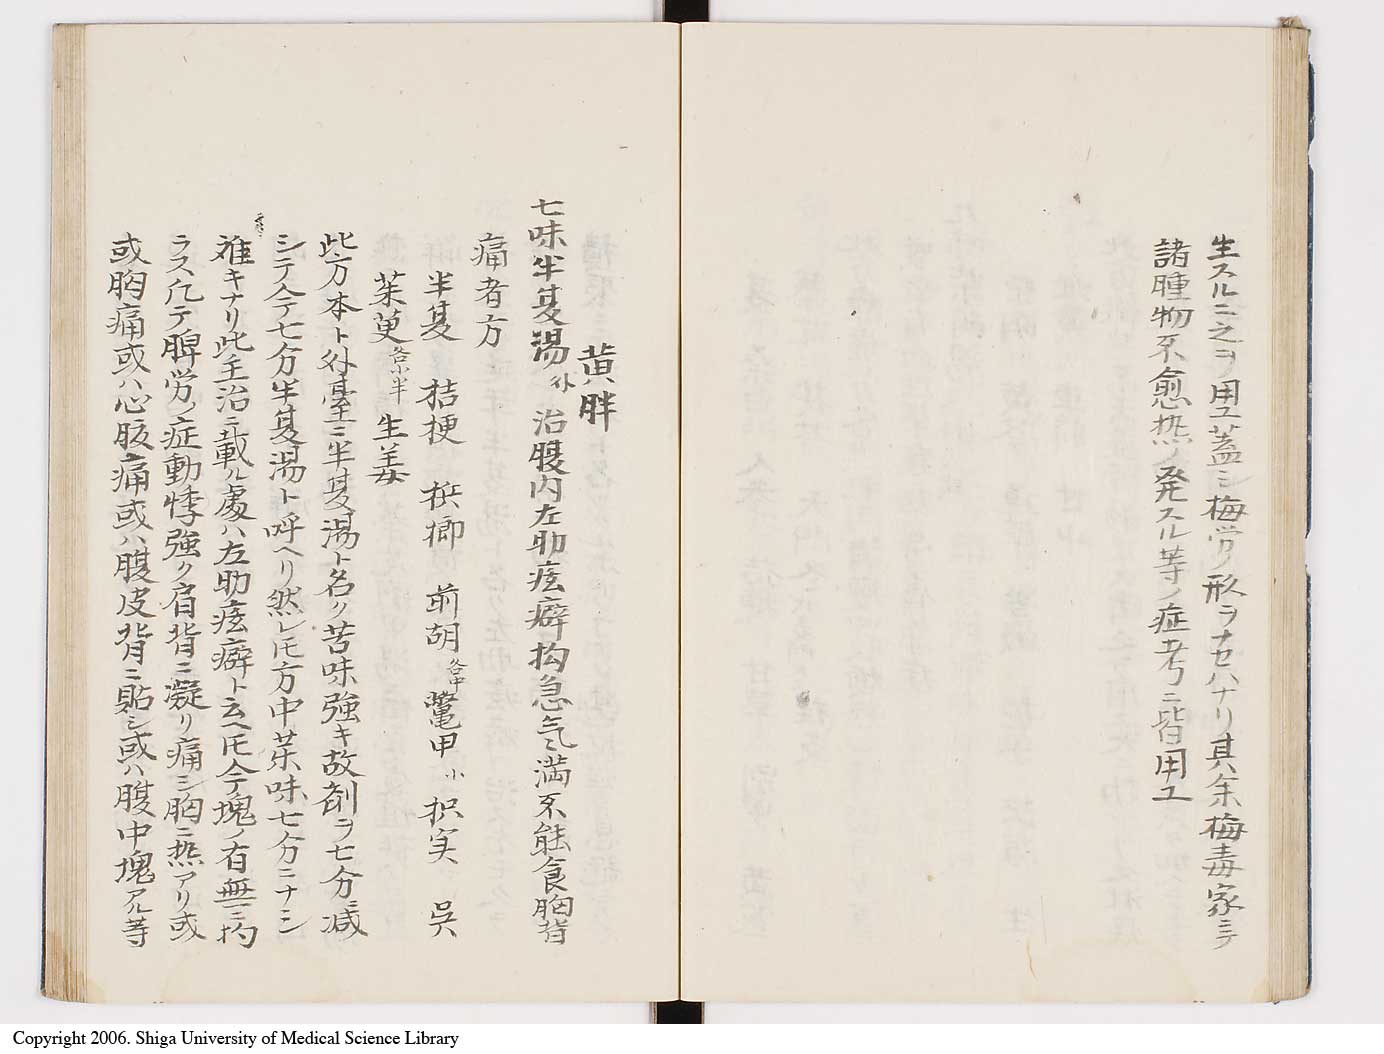 生スルニ之ヲ用ユ蓋シ梅労ノ形ヲナセハナリ其余梅毒家ニテ
諸腫物不愈热ノ発スル等ノ症考ニ皆用ユ
黄胖
七味半夏湯 外 治腹内左肋痃癖拘急气満不能食胸背
痛者方
半夏 桔梗 梹榔 前胡 各中 鼈甲 小 枳実 呉
茱萸 各小半 生姜
此方本ト外臺ニ半夏湯ト名ク苦味強キ故剤ヲ七分ニ减
シテ今七分半夏湯ト呼ヘリ然レ𪜈方中茱味七分ニナシ
难キナリ此主治ニ載ル處ハ左肋痃癖ト云ヘ𪜈今塊ノ有無ニ拘
ラス凡テ脾労ノ症動悸強ク肩背ニ凝リ痛シ胸ニ热アリ或
或胸痛或ハ心胲痛或ハ腹皮背ニ貼シ或ハ腹中塊アル等
Copyright 2006. Shiga University of Medical Science Library